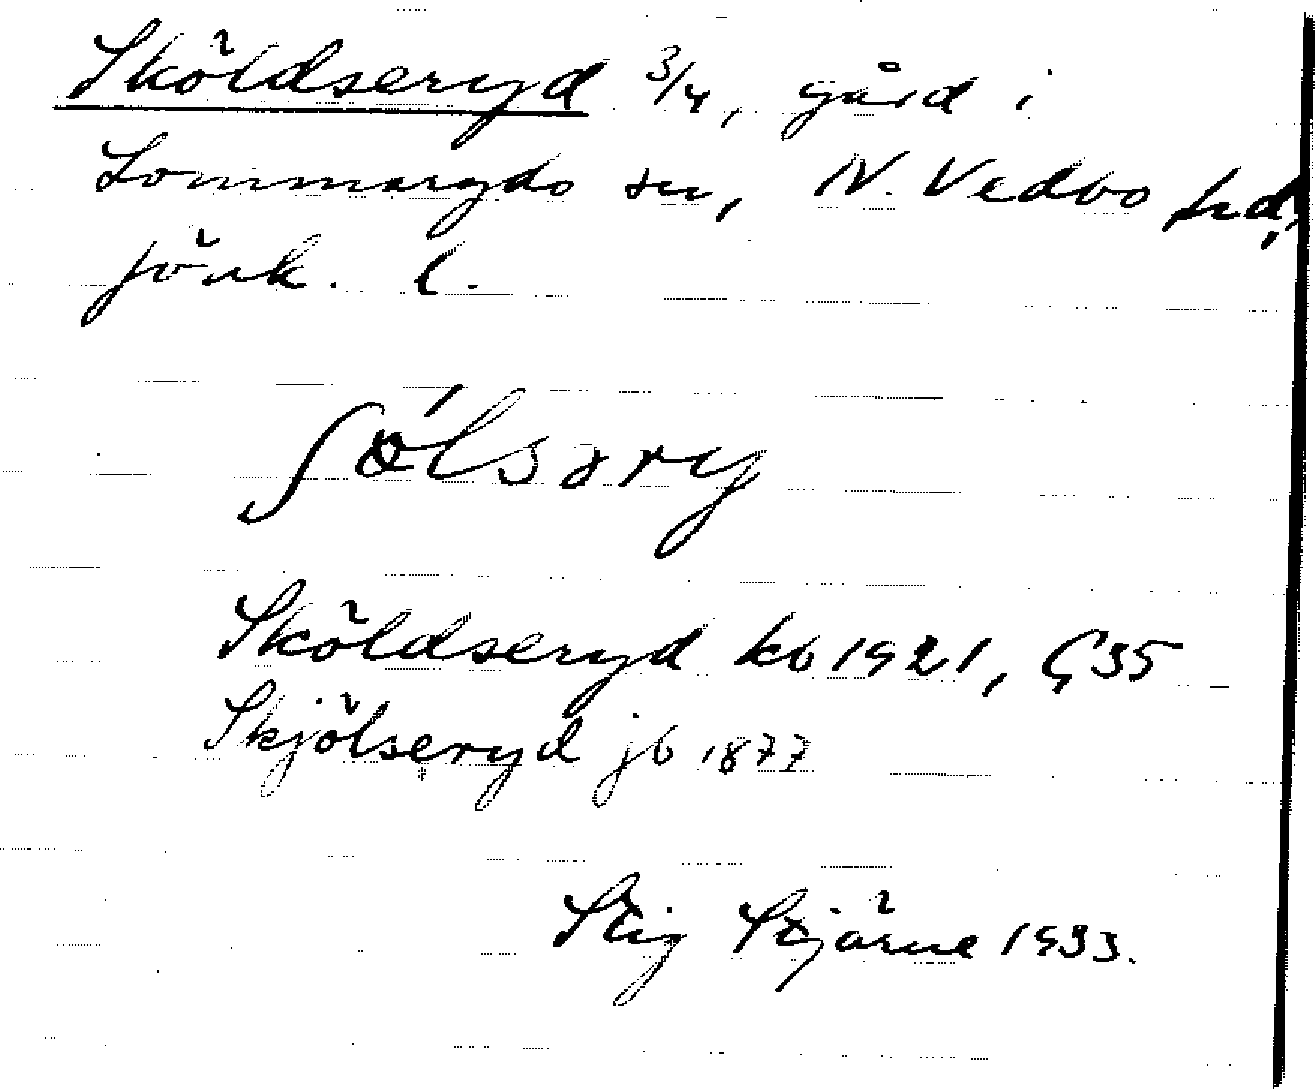 Sköldseryd 3/4, gård i
Lommaryds sn, N. Vedbo hd,
Jönk. l.
Sköldseryd kb 1921, § 35
Skjölseryd jb 1877
Stig Stjärne 1933.